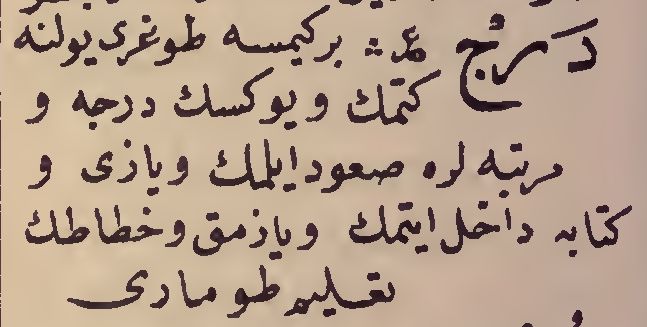 درج عر: بركيمسه طوغری يولنه
كتمك و يوكسك درجه و
مرتبه لره صعود ايلمك و يازی و
كتابه داخل ايتمك و يازمق و خطاطك
تعليم طوماری